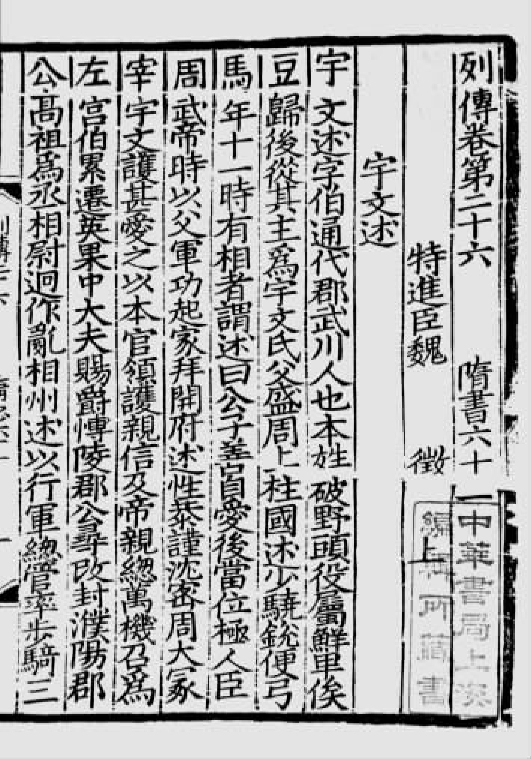 列傳卷第二十六 隋書六十一
特進臣魏 徵 上
宇文述
宇文述字伯通代郡武川人也本姓破野頭役屬鮮卑俟
豆歸後從其主爲宇文氏父盛周上柱國述少驍銳便弓
馬年十一時有相者謂述曰公子善自愛後當位極人臣
周武帝時以父軍功起家拜開府述性恭謹沈密周大冢
宰宇文護甚愛之以本官領護親信及帝親總萬機召爲
左宮伯累遷英果中大夫賜爵博陵郡公尋改封濮陽郡
公高祖爲丞相尉迥作亂相州述以行軍總管率步騎三
中華書局上海
編輯所藏書